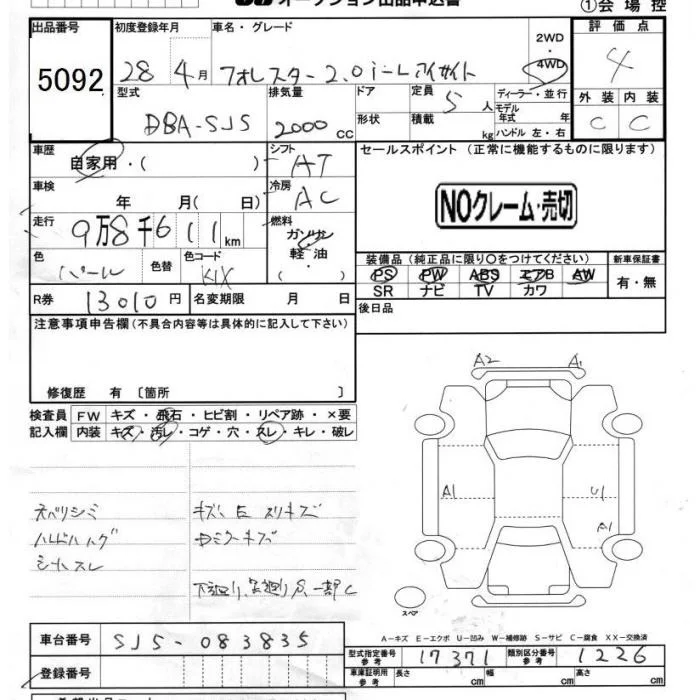 オークション出品申込書
①会場控
出品番号 初度登録年月 車名・グレード 2WD・4WD 評価点
5092 28年4月 フォレスター2.0i-Lアイサイト 4
型式 排気量 ドア 定員 5人 ディーラー・並行 外装 内装
DBA-SJ5 2000cc 形状 積載 kg モデル年式 年 ハンドル 左・右 C C
車歴 自家用・( ) シフト AT セールスポイント (正常に機能するものに限ります)
車検 年 月( 日) 冷房 AC NOクレーム・売切
走行 9万8千611km 燃料 ガソリン・軽油・( )
色 パール 色替 色コード K1X
装備品(純正品に限り〇をつけてください) 新車保証書
PS PW ABS エアB AW 有・無
SR ナビ TV カワ
R券 13010円 名変期限 月 日 後日品
注意事項申告欄(不具合内容等は具体的に記入して下さい)
修復歴 有 〔箇所 〕
検査員記入欄 FW キズ・飛石・ヒビ割・リペア跡・×要
内装 キズ・汚レ・コゲ・穴・スレ・キレ・破レ
A2 A1
ハンドルハゲ
シートスレ
下廻り、足廻りS、一部C
A1 U1
A1
スペア
A-キズ E-エクボ U-凹み W-補修跡 S-サビ C-腐食 XX-交換済
車台番号 SJ5-083835
型式指定番号 参考 17371 類別区分番号 参考 1226
登録番号 車庫証明用 参考 長さ 幅 高さ